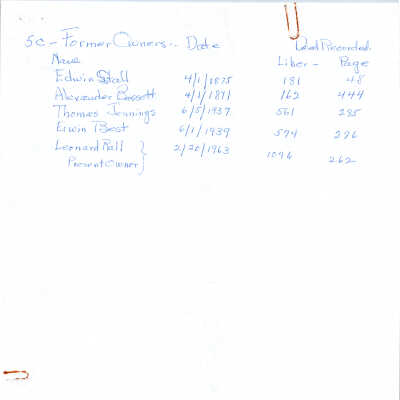 5c - Former Owners - Date Deed Recorded
Name Liber - Page
Edwin Stall 4/1/1875 181 48
Alexander Bassett 4/1/1891 162 444
Thomas Jennings 6/5/1937 561 285
Erwin Best 6/1/1939 594 296
Leonard Rall } 2/20/1963 1096 262
Present Owner }